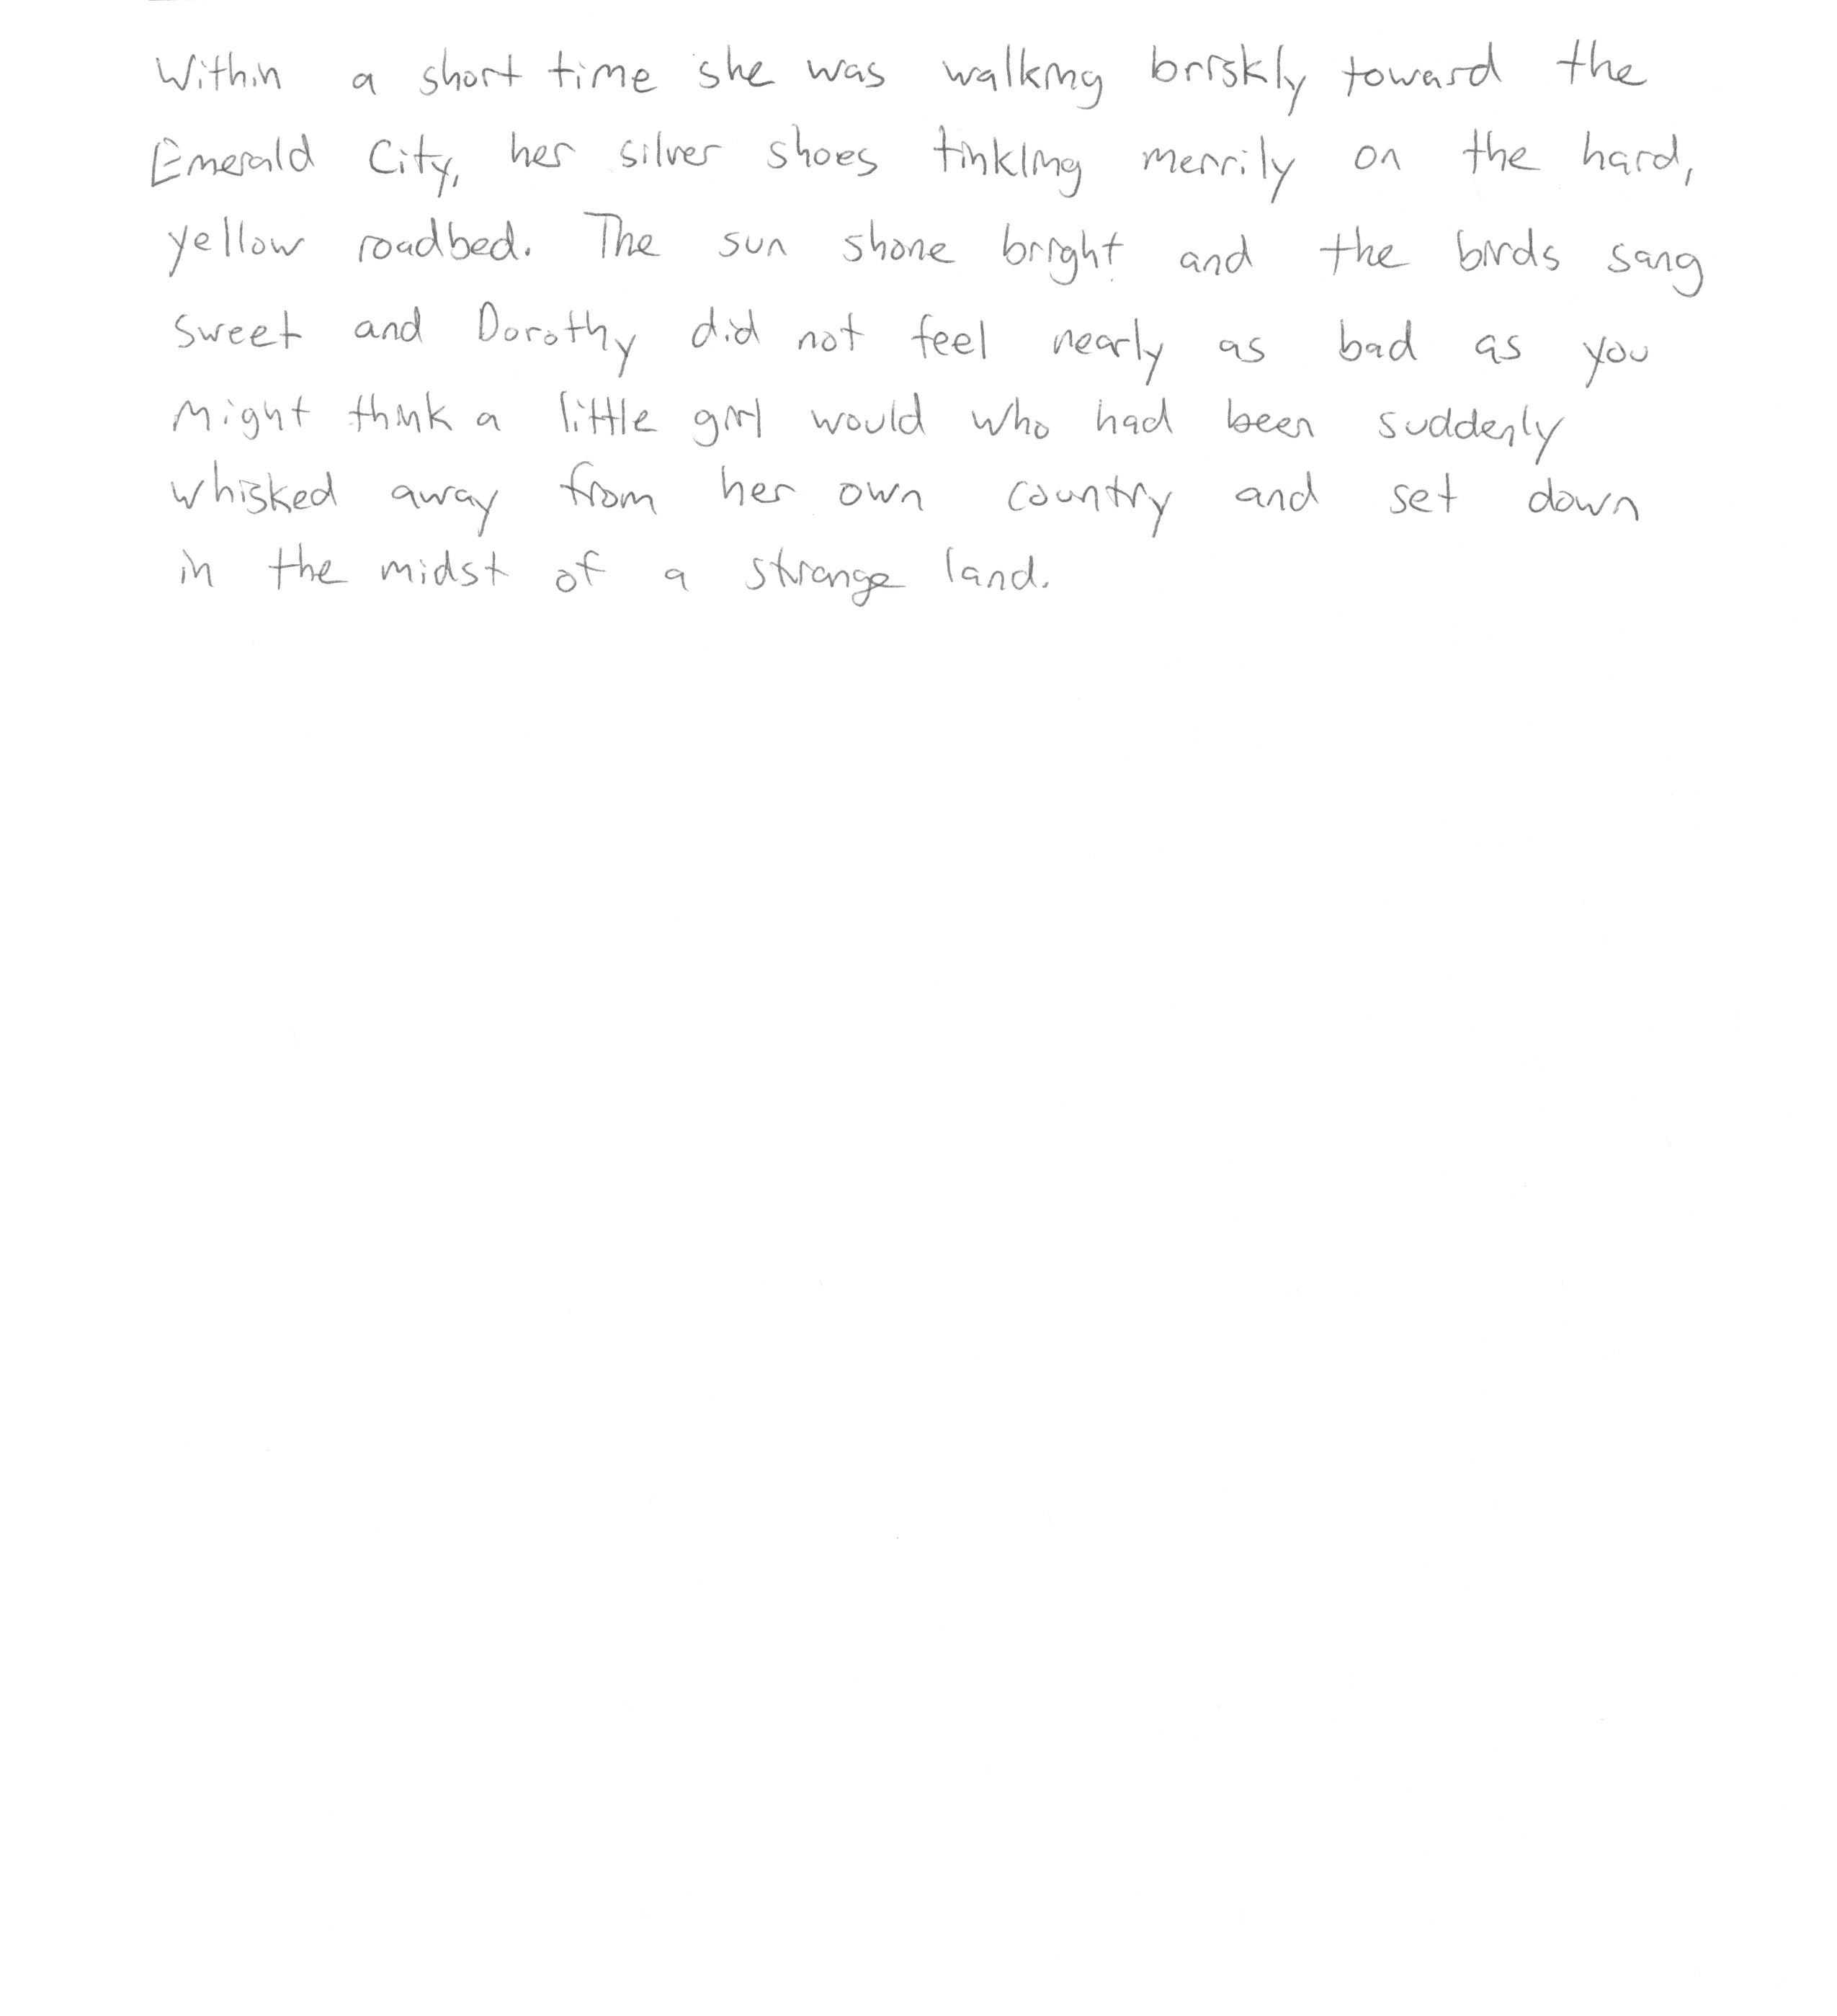 Within a short time she was walking briskly toward the
Emerald City, her silver shoes tinkling merrily on the hard,
yellow roadbed. The sun shone bright and the birds sang
sweet and Dorothy did not feel nearly as bad as you
might think a little girl would who had been suddenly
whisked away from her own country and set down
in the midst of a strange land.